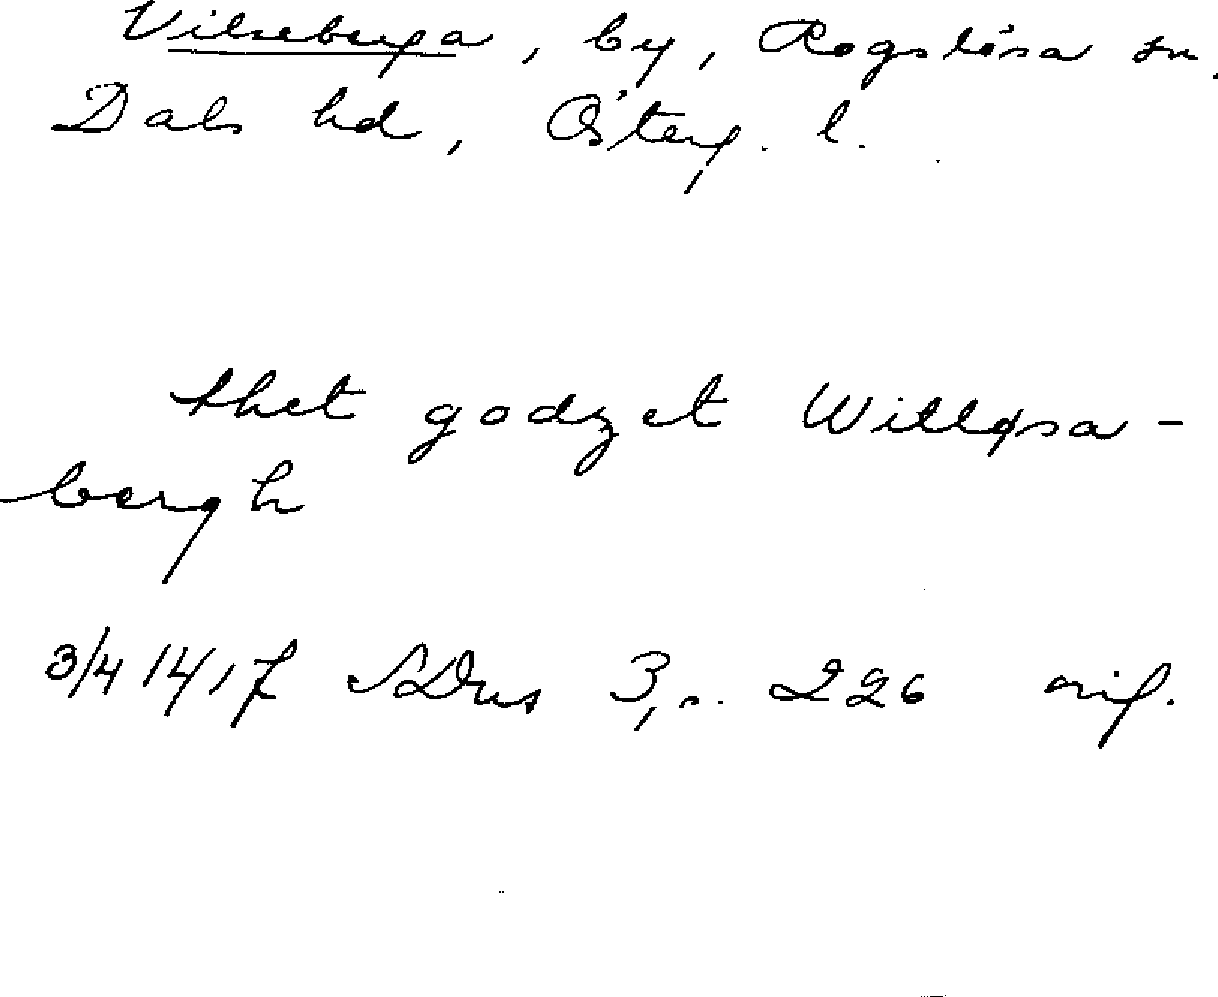 Vilseberga, by, Rogslösa sn.
Dals hd, Österg. l.
thet godzet Willøsa-
bergh
3/4 1417 SDns 3, s. 226 orig.